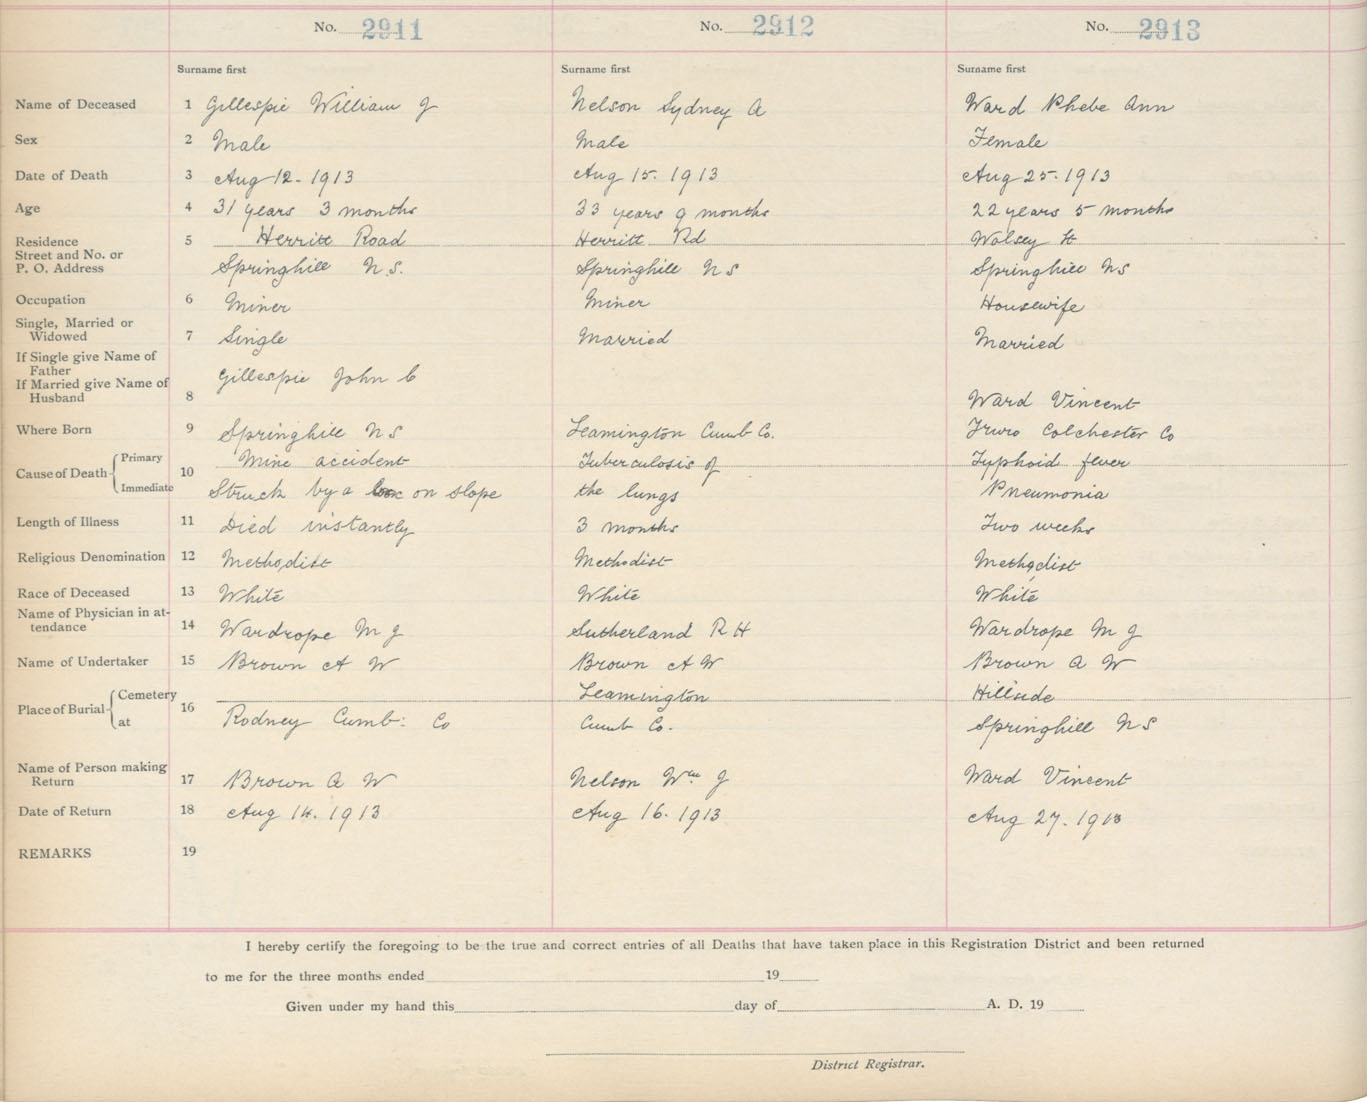 No. 2911 No. 2912 No. 2913
Surname first Surname first Surname first
Name of Deceased 1 Gillespie William J Nelson Sydney A Ward Phebe Ann
Sex 2 Male Male Female
Date of Death 3 Aug 12. 1913 Aug 15. 1913 Aug 25. 1913
Age 4 31 years 3 months 33 years 9 months 22 years 5 months
Residence 5 Herritt Road Herritt Rd Wolsey St
Street and No. or
P. O. Address Springhill N.S. Springhill N S Springhill N S
Occupation 6 Miner Miner Housewife
Single, Married or
Widowed 7 Single Married Married
If Single give Name of
Father Gillespie John C
If Married give Name of
Husband 8 Ward Vincent
Where Born 9 Springhill N S Leamington Cumb Co. Truro Colchester Co
Cause of Death Primary 10 Mine accident Tuberculosis of Typhoid fever
Immediate Struck by a on slope the lungs Pneumonia
Length of Illness 11 Died instantly 3 months Two weeks
Religious Denomination 12 Methodist Methodist Methodist
Race of Deceased 13 White White White
Name of Physician in at-
tendance 14 Wardrope M J Sutherland R H Wardrope M J
Name of Undertaker 15 Brown A W Brown A W Brown A W
Place of Burial Cemetery 16 Leamington Hillside
at Rodney Cumb: Co Cumb Co. Springhill N S
Name of Person making
Return 17 Brown A W Nelson Wm J Ward Vincent
Date of Return 18 Aug 14. 1913 Aug 16. 1913 Aug 27. 1913
REMARKS 19
I hereby certify the foregoing to be the true and correct entries of all Deaths that have taken place in this Registration District and been returned
to me for the three months ended 19
Given under my hand this day of A. D. 19
District Registrar.